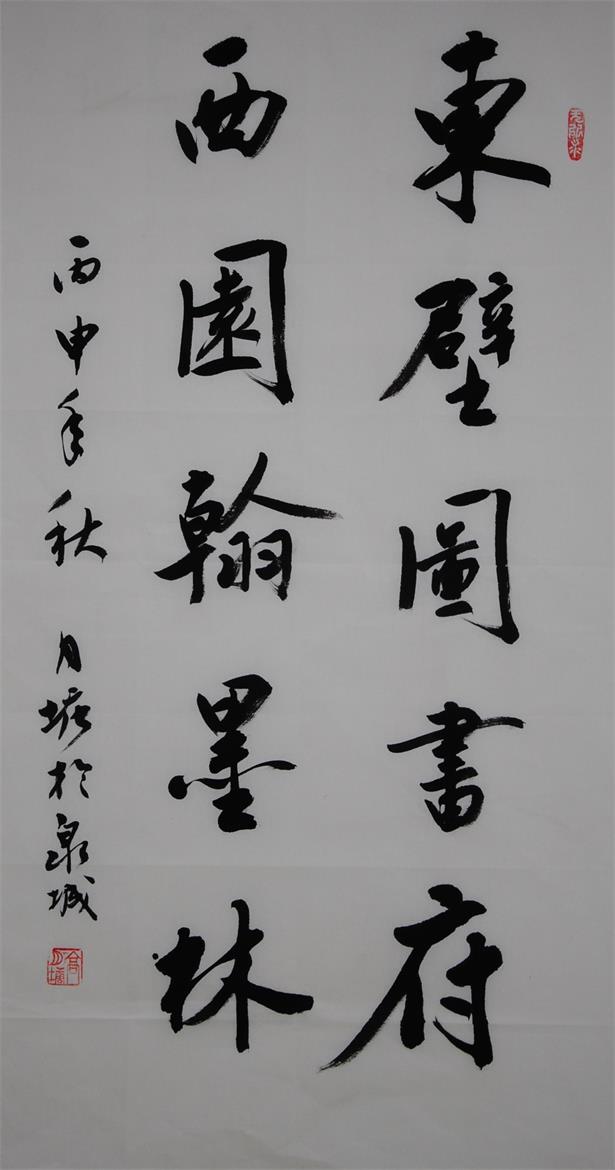 東壁圖書府
西園翰墨林
丙申年秋 月塘於泉城